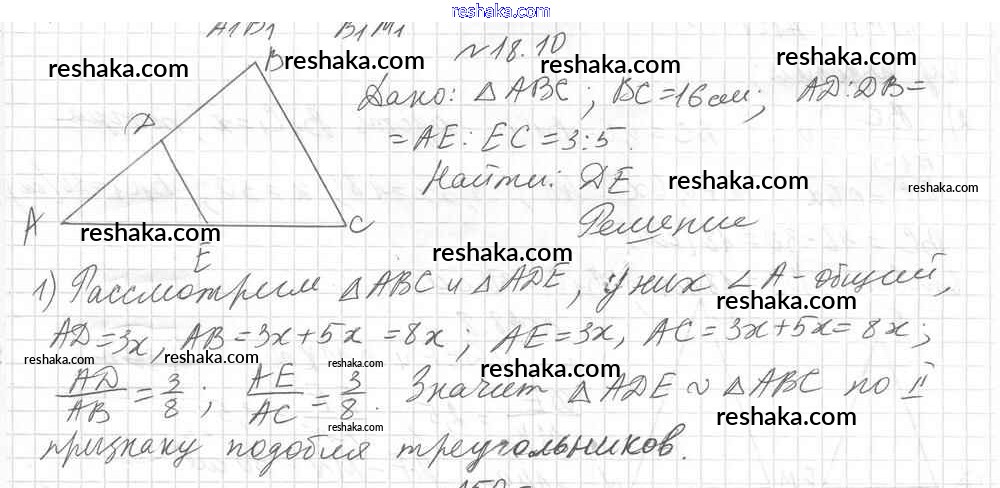 reshaka.com
A1B1 B1M1
№18.10
B
reshaka.com
reshaka.com
Дано: △ABC; BC=16см; AD:DB=
reshaka.com
D
=AE:EC=3:5.
Найти: DE
reshaka.com
reshaka.com
A
C
Решение
reshaka.com
reshaka.com
E
1) Рассмотрим △ABC и △ADE, у них ∠A-общий,
reshaka.com
AD=3x, AB=3x+5x=8x; AE=3x, AC=3x+5x=8x;
reshaka.com
reshaka.com
reshaka.com
reshaka.com
AD/AB=3/8; AE/AC=3/8. Значит △ADE ~ △ABC по II
reshaka.com
reshaka.com
признаку подобия треугольников.